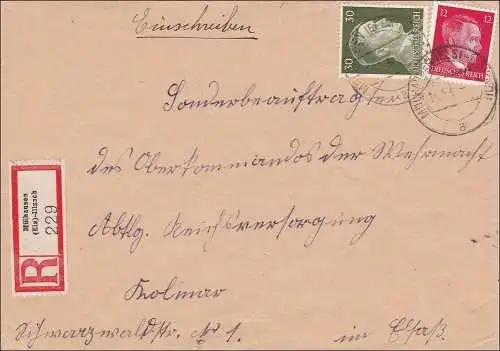 Einschreiben
30 30
DEUTSCHES REICH
12 12
DEUTSCHES REICH
a
Sonderbeauftragter
des Oberkommandos der Wehrmacht
Abtlg. Reichsversorgung
Kolmar
Schwarzwaldstr. No 1. im Elsaß
R
Mülhausen
(Els)-Illzach
229